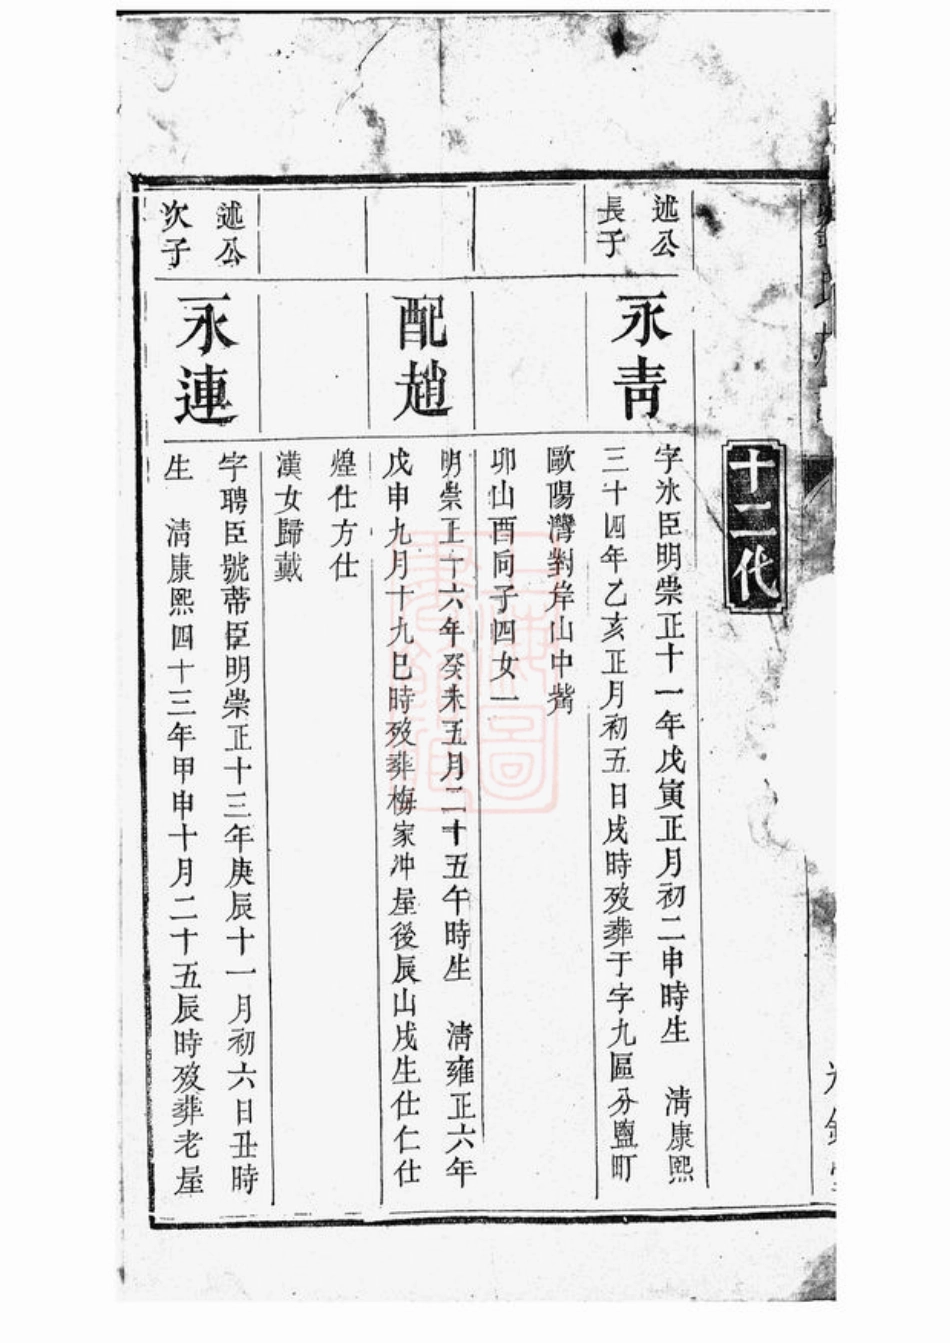 十二代
述公
長子
永靑
字氷臣明崇正十一年戊寅正月初二申時生 淸康熙
三十四年乙亥正月初五日戌時歿葬于字九區分鹽町
歐陽灣對岸山中嘴
卯山酉向子四女一
配趙
明崇正十六年癸未五月二十五午時生 淸雍正六年
戊申九月十九巳時歿葬梅家冲屋後辰山戌生仕仁仕
煌仕方仕
漢女歸戴
述公
次子
永連
字聘臣號蒂臣明崇正十三年庚辰十一月初六日丑時
生 淸康熙四十三年甲申十月二十五辰時歿葬老屋